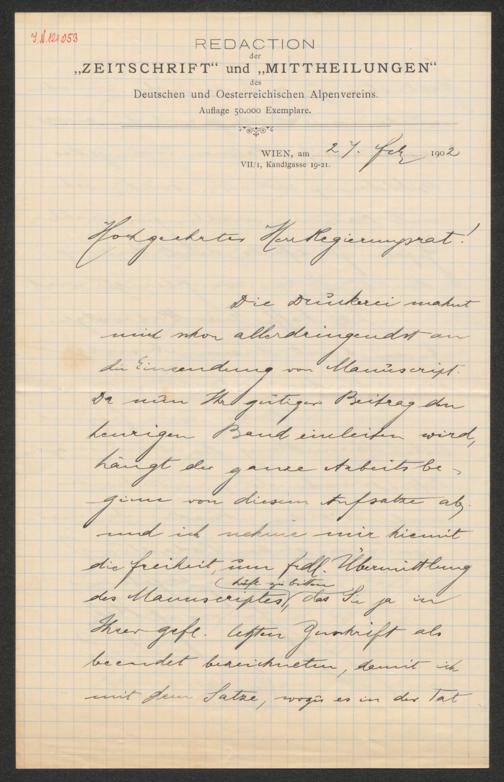 J.N. 121.053
REDACTION
der
„ZEITSCHRIFT“ und „MITTHEILUNGEN“
des
Deutschen und Oesterreichischen Alpenvereins.
Auflage 50.000 Exemplare.
WIEN, am 27. Feb 1902
VII/1, Kandlgasse 19-21.
Hochgeehrter Herr Regierungsrat!
Die Druckerei mahnt
mich schon allerdringendst an
die Einsendung von Manuscript.
Da nun Ihr gütiger Beitrag den
heurigen Band einleiten wird,
hängt der ganze Arbeitsbe-
ginn von diesem Aufsatze ab
und ich nehme mir hiemit
die Freiheit, um frdl. Übermittlung
höfl. zu bitten
des Manuscriptes, das Sie ja in
Ihrer gefl. letzten Zuschrift als
beendet bezeichneten, damit ich
mit dem Satze, wozu es in der Tat